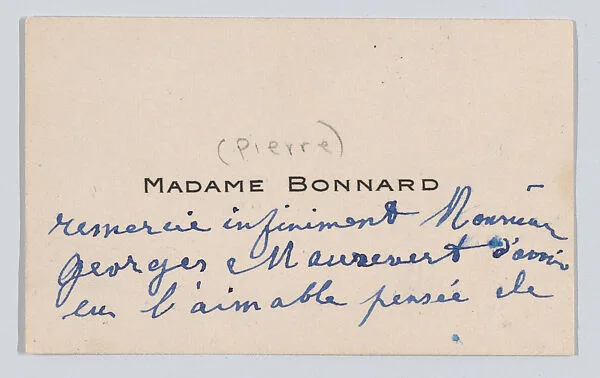 (Pierre)
MADAME BONNARD
remercie infiniment Monsieur
Georges Maurevert d'avoir
eu l'aimable pensée de